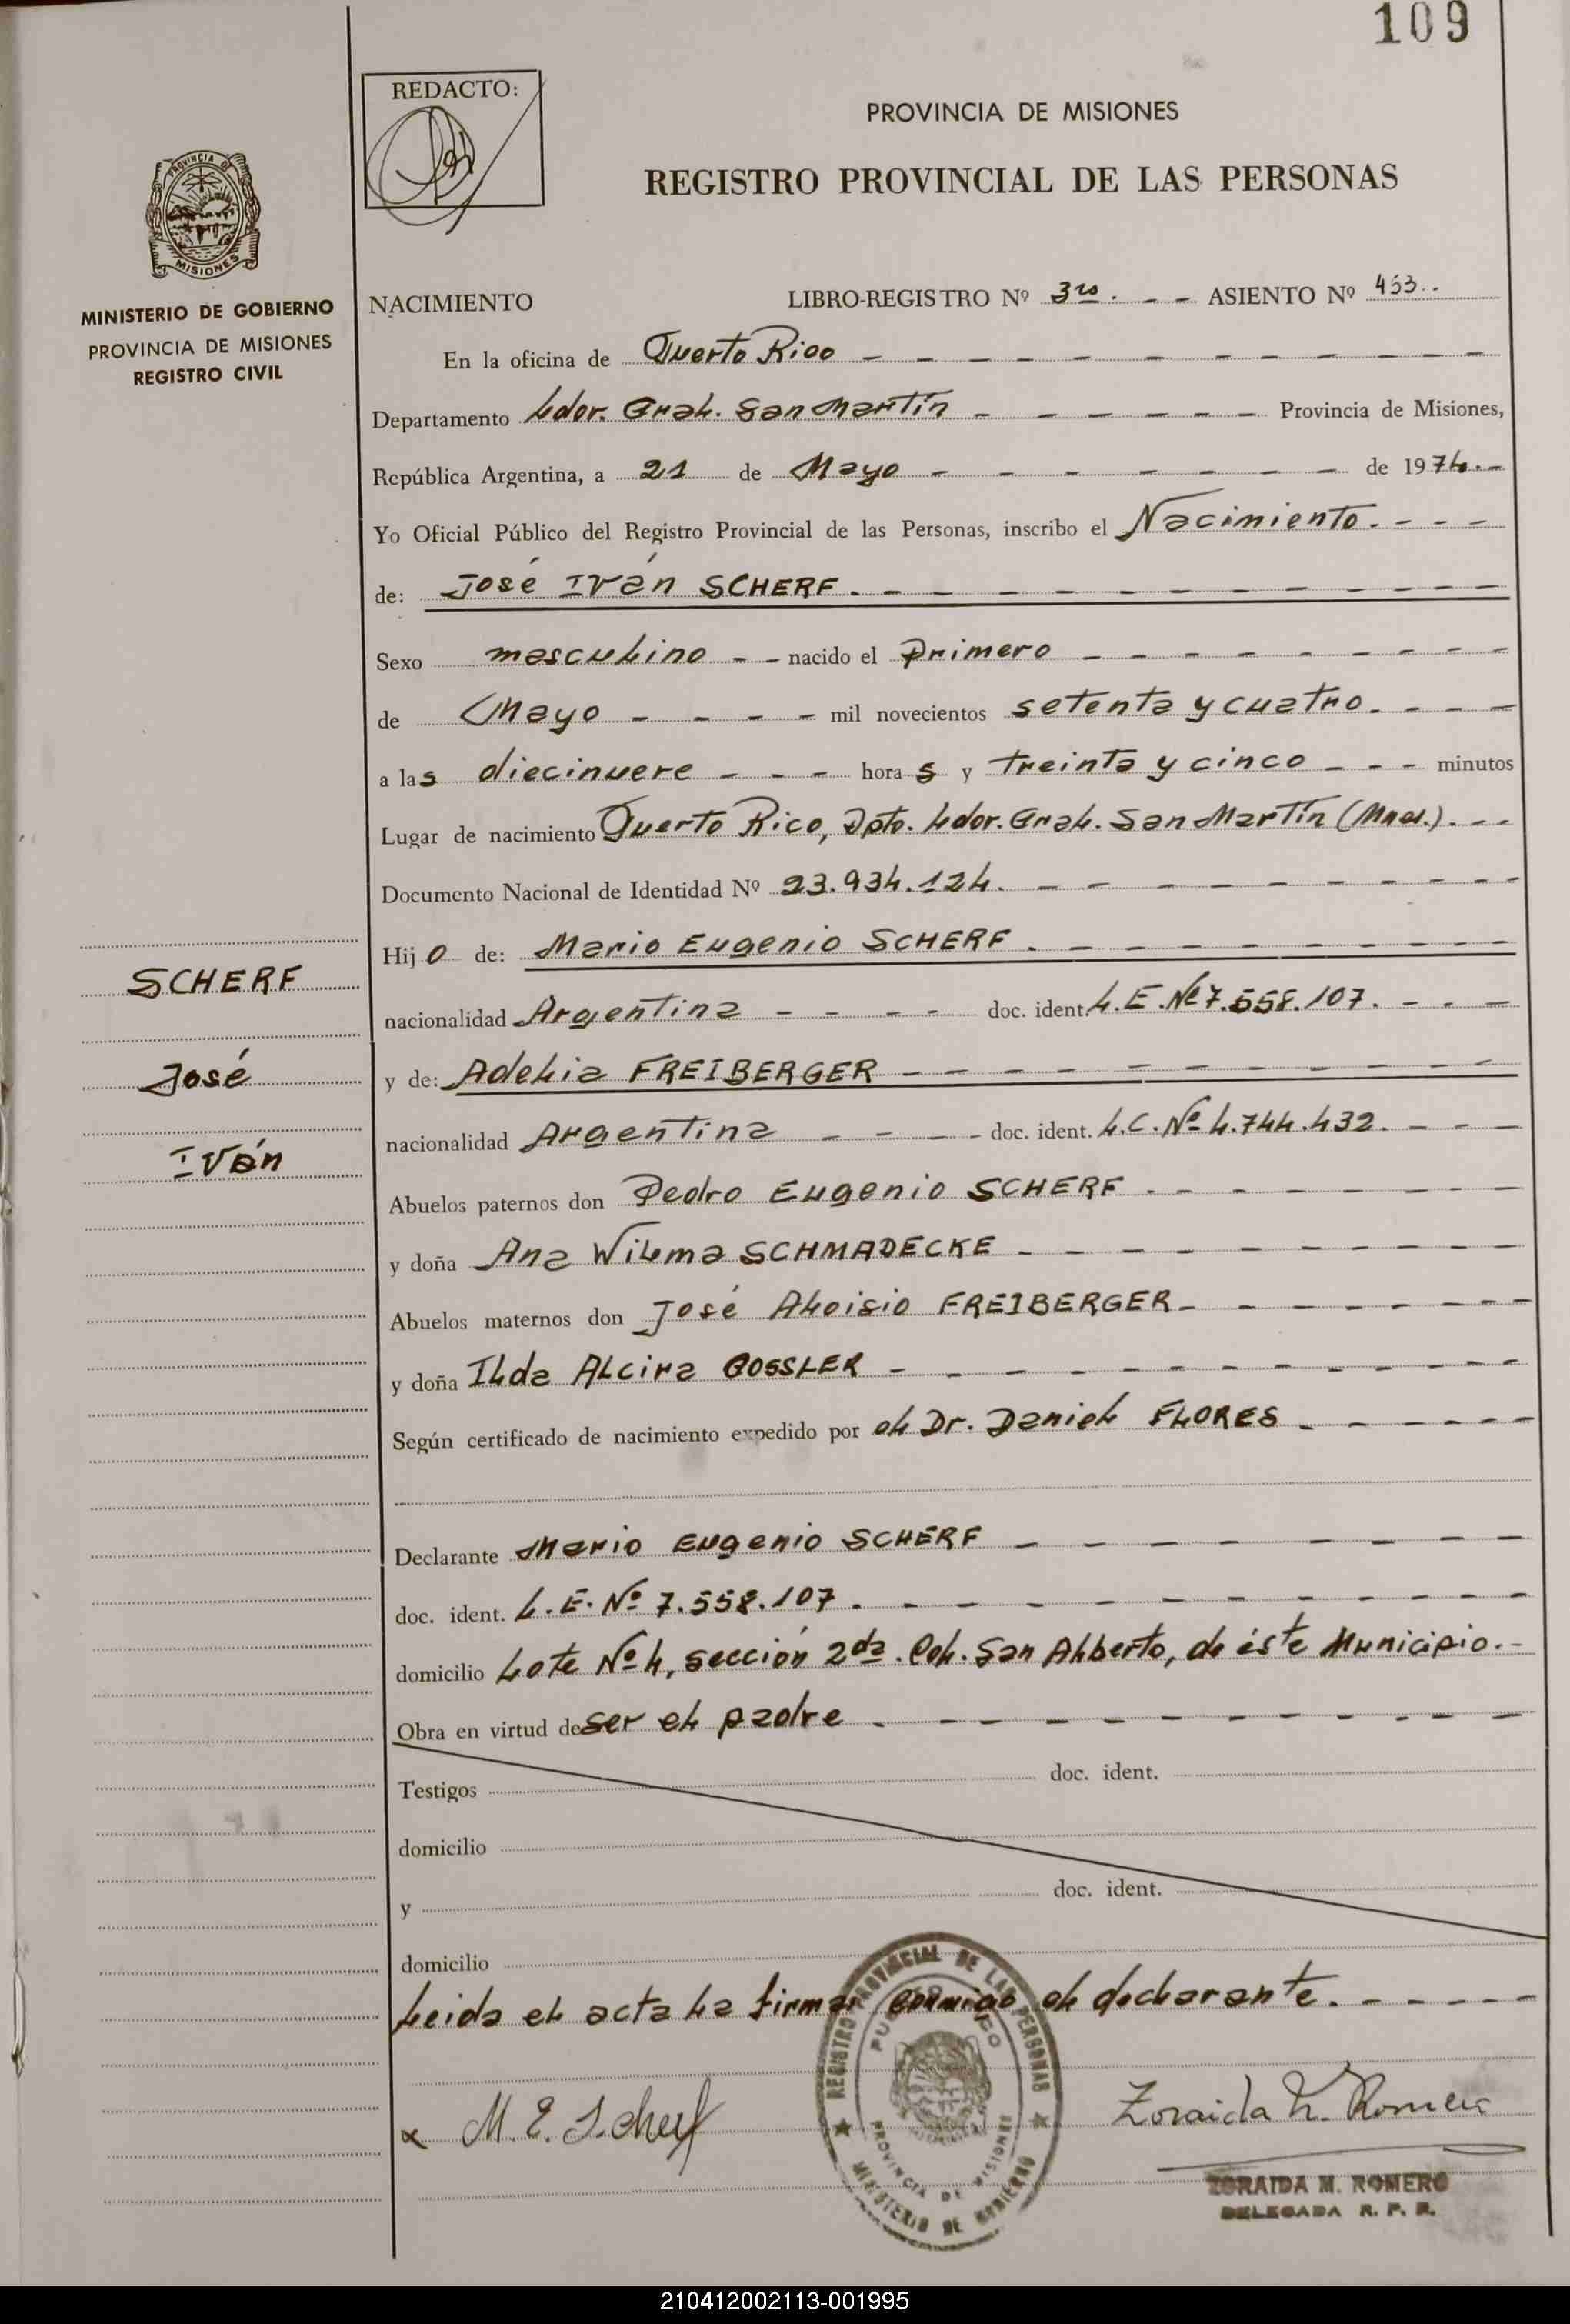 109
REDACTO:
PROVINCIA DE MISIONES
REGISTRO PROVINCIAL DE LAS PERSONAS
PROVINCIA DE
MISIONES
MINISTERIO DE GOBIERNO
PROVINCIA DE MISIONES
REGISTRO CIVIL
NACIMIENTO LIBRO-REGISTRO Nº 3ro. - - ASIENTO Nº 453..
En la oficina de Puerto Rico
Departamento Ldor. Gral. San Martín Provincia de Misiones,
República Argentina, a 21 de Mayo de 1974.-
Yo Oficial Público del Registro Provincial de las Personas, inscribo el Nacimiento. - - -
de: José Iván SCHERF.
Sexo masculino - - nacido el Primero
de Mayo - - - - mil novecientos setenta y cuatro. - - -
a las diecinueve - - - horas y treinta y cinco - - - minutos
Lugar de nacimiento Puerto Rico, Dpto. Ldor. Gral. San Martín (Mnes.). - -
Documento Nacional de Identidad Nº 23.934.124.
Hijo de: Mario Eugenio SCHERF.
SCHERF
nacionalidad Argentina - - - - doc. ident. L.E. Nº 7.558.107. - - -
José
y de: Adelia FREIBERGER
nacionalidad Argentina - - - - doc. ident. L.C. Nº 4.744.432. - - -
Iván
Abuelos paternos don Pedro Eugenio SCHERF.
y doña Ana Wilma SCHMADECKE
Abuelos maternos don José Aloisio FREIBERGER
y doña Ilda Alcira GOSSLER
Según certificado de nacimiento expedido por el Dr. Daniel FLORES
Declarante Mario Eugenio SCHERF
doc. ident. L.E. Nº 7.558.107.
domicilio Lote Nº 4, sección 2da. Col. San Alberto, de éste Municipio.-
Obra en virtud de ser el padre.
Testigos doc. ident.
domicilio
y doc. ident.
domicilio
Leida el acta la firma conmigo el declarante. - - - - -
REGISTRO PROVINCIAL DE LAS PERSONAS
PUERTO RICO
PROVINCIA DE MISIONES
MINISTERIO DE GOBIERNO
x M. E. Scherf
Zoraida M. Romero
ZORAIDA M. ROMERO
DELEGADA R. P. P.
210412002113-001995